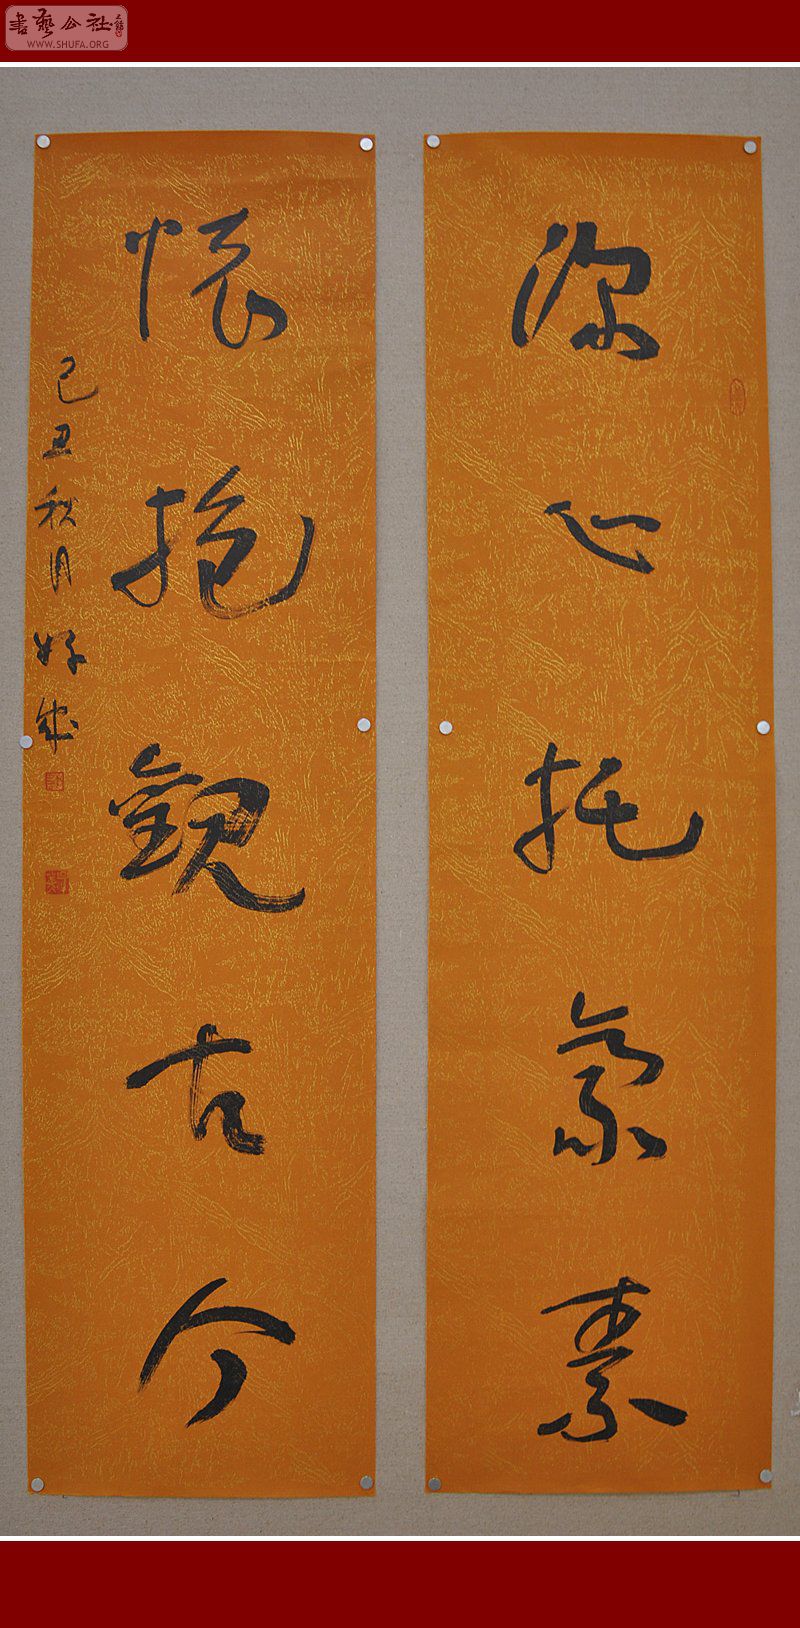 書藝公社
WWW.SHUFA.ORG
深心托豪素
懷抱觀古今
己丑秋月